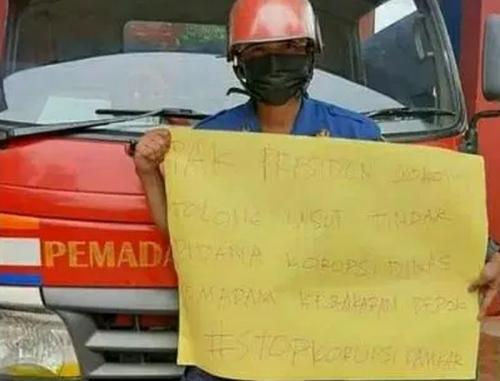 PAK PRESIDEN JOKOWI
TOLONG USUT TINDAK
PIDANA KORUPSI DINAS
PEMADAM KEBAKARAN DEPOK
#STOPKORUPSI DAMKAR
PEMADA